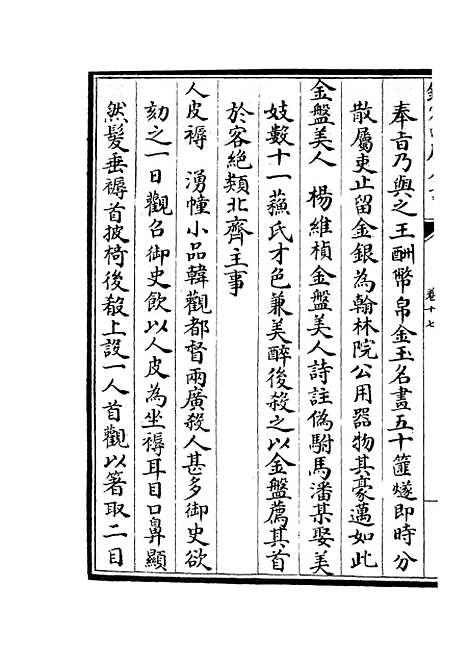 奉旨乃與之王酬幣帛金玉名畫五十篋燧即時分
散屬吏止留金銀為翰林院公用器物其豪邁如此
金盤美人 楊維楨金盤美人詩註偽駙馬潘某娶美
妓數十一蘓氏才色兼美醉後殺之以金盤薦其首
於客絕類北齊主事
人皮褥 湧幢小品韓觀都督兩廣殺人甚多御史欲
劾之一日觀召御史飲以人皮為坐褥耳目口鼻顯
然髮垂褥首披椅後殽上設一人首觀以箸取二目
卷十七